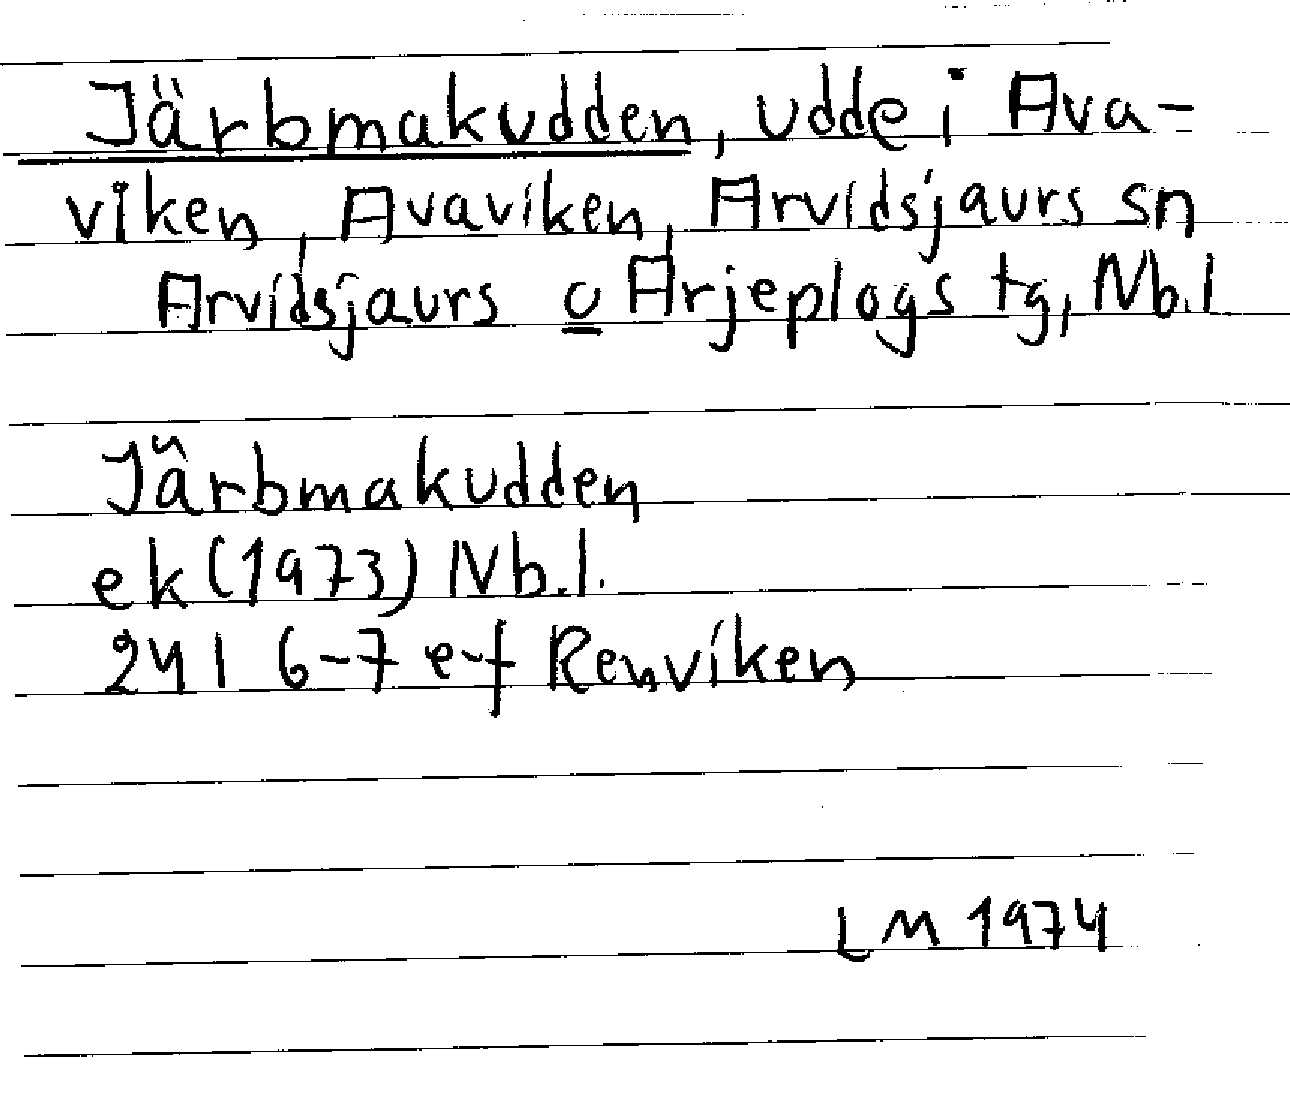 Järbmakudden, udde i Ava-
viken, Avaviken, Arvidsjaurs sn
Arvidsjaurs o Arjeplogs tg, Nb.l
Järbmakudden
ek (1973) Nb.l.
24 I 6-7 e-f Renviken
LM 1974